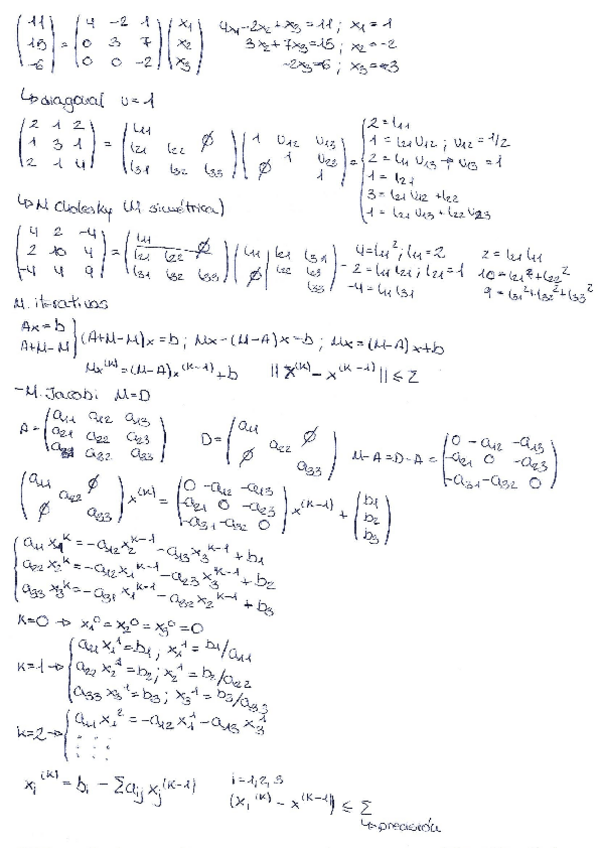 (11; 15; -6) = (4 -2 1; 0 3 7; 0 0 -2) (x₁; x₂; x₃)
4x₁-2x₂+x₃=11; x₁=1
3x₂+7x₃=15; x₂=-2
-2x₃=6; x₃=-3
↳ diagonal U=1
(2 1 2; 1 3 1; 2 1 4) = (l₁₁; l₂₁ l₂₂ ∅; l₃₁ l₃₂ l₃₃) (1 U₁₂ U₁₃; ∅ 1 U₂₃; 1) =
2=l₁₁
1=l₂₁U₁₂; U₁₂=1/2
2=l₁₁U₁₃→U₁₃=1
1=l₂₁
3=l₂₁U₁₂+l₂₂
1=l₂₁U₁₃+l₂₂U₂₃
↳ M Cholesky (M simétrica)
(4 2 -4; 2 10 4; -4 4 9) = (l₁₁; l₂₁ l₂₂ ∅; l₃₁ l₃₂ l₃₃) (l₁₁ l₂₁ l₃₁; ∅ l₂₂ l₃; l₃₃)
4=l₁₁²; l₁₁=2 2=l₂₁l₁₁
2=l₁₁l₂₁; l₂₁=1 10=l₂₁²+l₂₂²
-4=l₁₁l₃₁ 9=l₃₁²+l₃₂²+l₃₃²
M. iterativos
Ax=b
A+M-M
(A+M-M)x=b; Mx-(M-A)x=b; Mx=(M-A)x+b
Mx^(k)=(M-A)x^(k-1)+b ||x^(k)-x^(k-1)||≤Σ
-M. Jacobi M=D
A=(a₁₁ a₁₂ a₁₃; a₂₁ a₂₂ a₂₃; a₃₁ a₃₂ a₃₃) D=(a₁₁; a₂₂ ∅; ∅ a₃₃) M-A=D-A=(0 -a₁₂ -a₁₃; -a₂₁ 0 -a₂₃; -a₃₁ -a₃₂ 0)
(a₁₁; a₂₂ ∅; ∅ a₃₃) x^(k) = (0 -a₁₂ -a₁₃; -a₂₁ 0 -a₂₃; -a₃₁ -a₃₂ 0) x^(k-1) + (b₁; b₂; b₃)
a₁₁x₁^k=-a₁₂x₂^k-1-a₁₃x₃^k-1+b₁
a₂₂x₂^k=-a₁₂x₁^k-1-a₂₃x₃^k-1+b₂
a₃₃x₃^k=-a₃₁x₁^k-1-a₃₂x₂^k-1+b₃
k=0 → x₁⁰=x₂⁰=x₃⁰=0
k=1→
a₁₁x₁¹=b₁; x₁¹=b₁/a₁₁
a₂₂x₂¹=b₂; x₂¹=b₂/a₂₂
a₃₃x₃¹=b₃; x₃¹=b₃/a₃₃
k=2→ a₁₁x₁²=-a₁₂x₁¹-a₁₃x₃¹
x_i^(k)=b_i-Σa_ij x_j^(k-1) i=1,2,3
(x_i^(k)-x^(k-1))≤Σ
↳ precisión